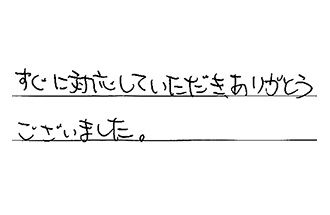 すぐに対応していただきありがとう
ございました。